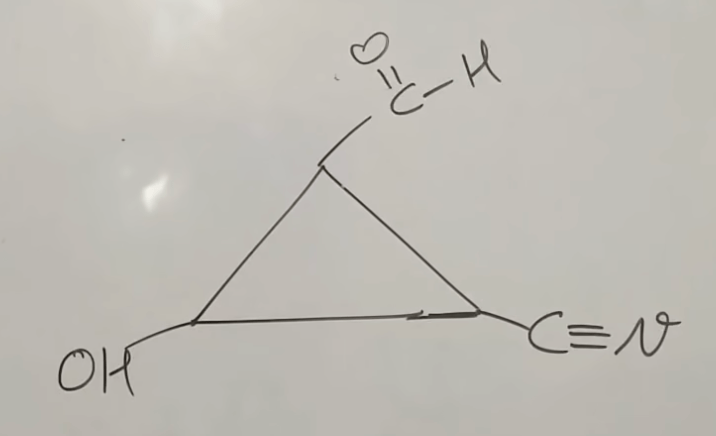 O
=
C–H
OH
C≡N